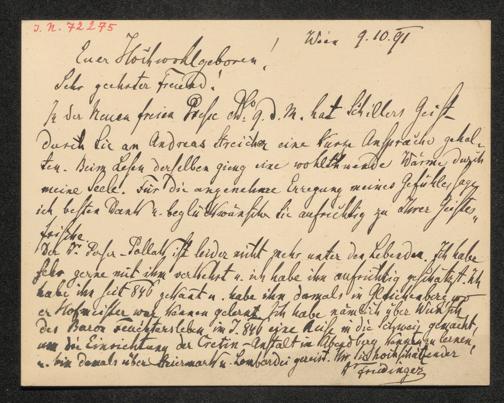 I. N. 72275
Wien 9.10.91
Euer Hochwohlgeboren!
Sehr geehrter Freund!
In der Neuen freien Presse d. M. hat Schillers Geist
durch Sie an Andreas Streicher eine kurze Ansprache gehal-
ten. Beim Lesen derselben gieng eine wohlthuende Wärme durch
meine Seele. Für die angenehme Erregung meines Gefühles sage
ich besten Dank u. beglückwünsche Sie aufrichtig zu Ihrer Geistes-
frische.
Der Dr. Pollak ist leider nicht mehr unter den Lebenden. Ich habe
sehr gerne mit ihm verkehrt u. ich habe ihn aufrichtig geschätzt. Ich
habe ihn seit 846 gekannt u. habe ihn damals in Gleichenberg wo
er Hofmeister war können gelernt. Ich habe nämlich über Wunsch
des Baron Feuchtersleben, im J. 846 eine Reise in die Schweiz gemacht,
um die Einrichtung der Cretin-Anstalt in Abendberg kennen zu lernen,
u. bin damals über Steiermark u. Lombardei gereist. Ihr Sie hochschätzender
Dr Friedinger